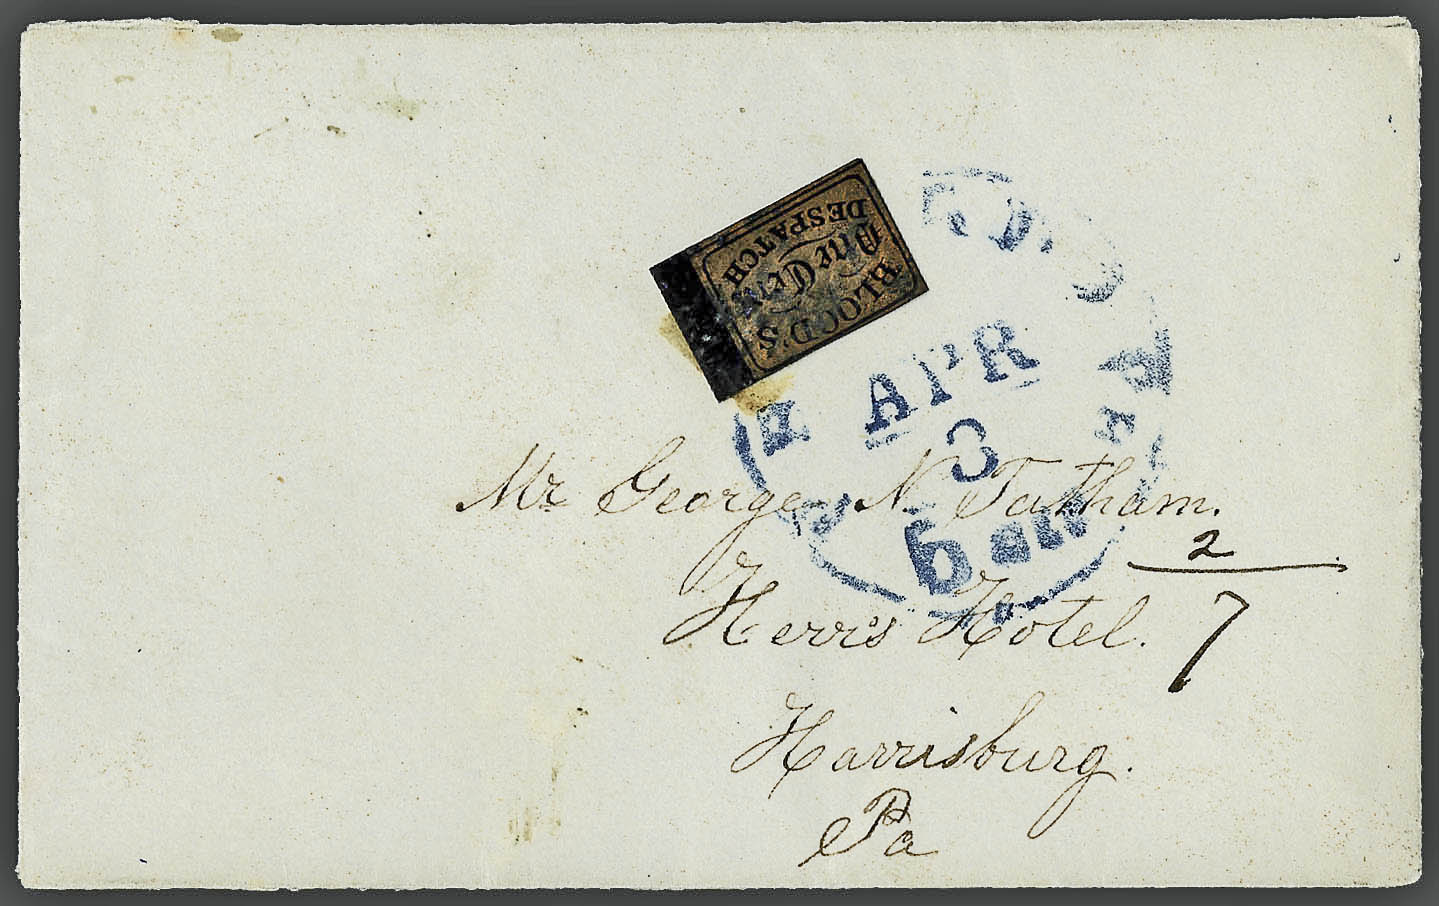 BLOOD'S
One Cent
DESPATCH
APR
3
5 cts
Mr George N. Tatham.
2
Herr's Hotel.
7
Harrisburg.
Pa